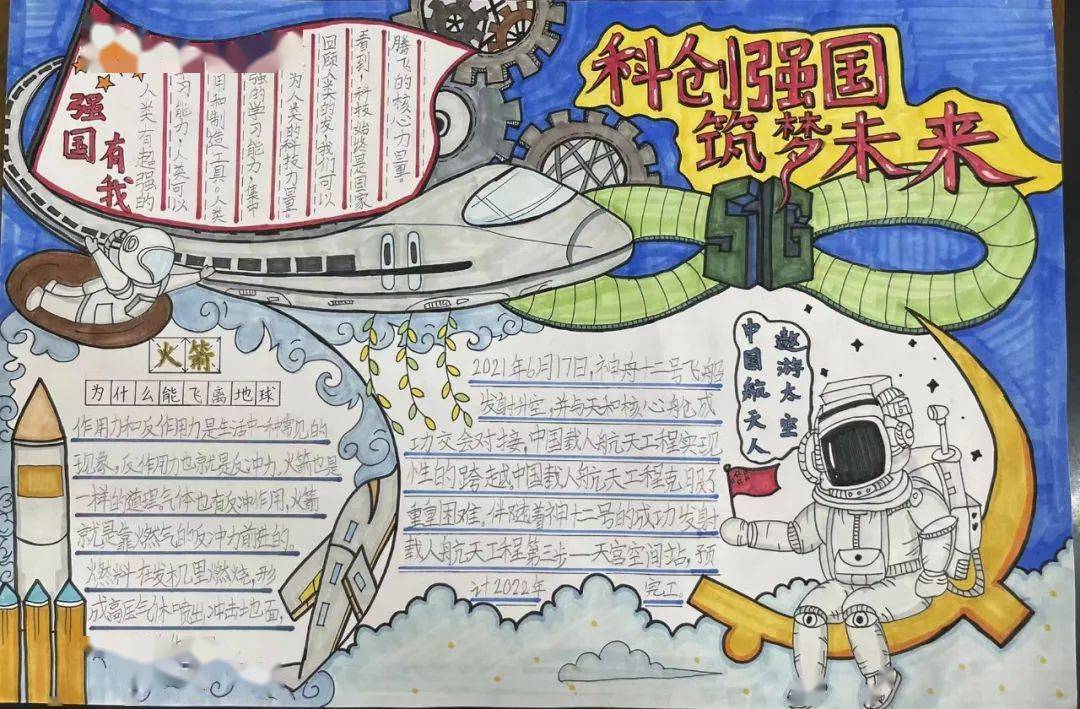 科创强国
筑梦未来
5G
强国有我
人类有超强的
习能力,人类可以
用和制造工具。人类
强的学习能力,集中
为人类的科技力量。
回顾人类的发,我们可以
看到,科技始终是国家
腾飞的核心力量。
火箭
为什么能飞离地球
作用力和反作用力是生活中一种常见的
现象,反作用力也就是反冲力,火箭也是
一样的道理气体也有反冲作用,火箭
就是靠燃气的反冲力前进的。
燃料在发机里燃烧,形
成高压气体喷出冲击地面,
2021年6月17日,神舟十二号飞船
发射升空,并与天和核心舱成
功交会对接,中国载人航天工程实现
性的跨越中国载人航天工程克服了
重重困难。伴随着神十二号的成功发射
载人航天工程第三步——天宫空间站,预
计2022年完工。
遨游太空
中国航天人